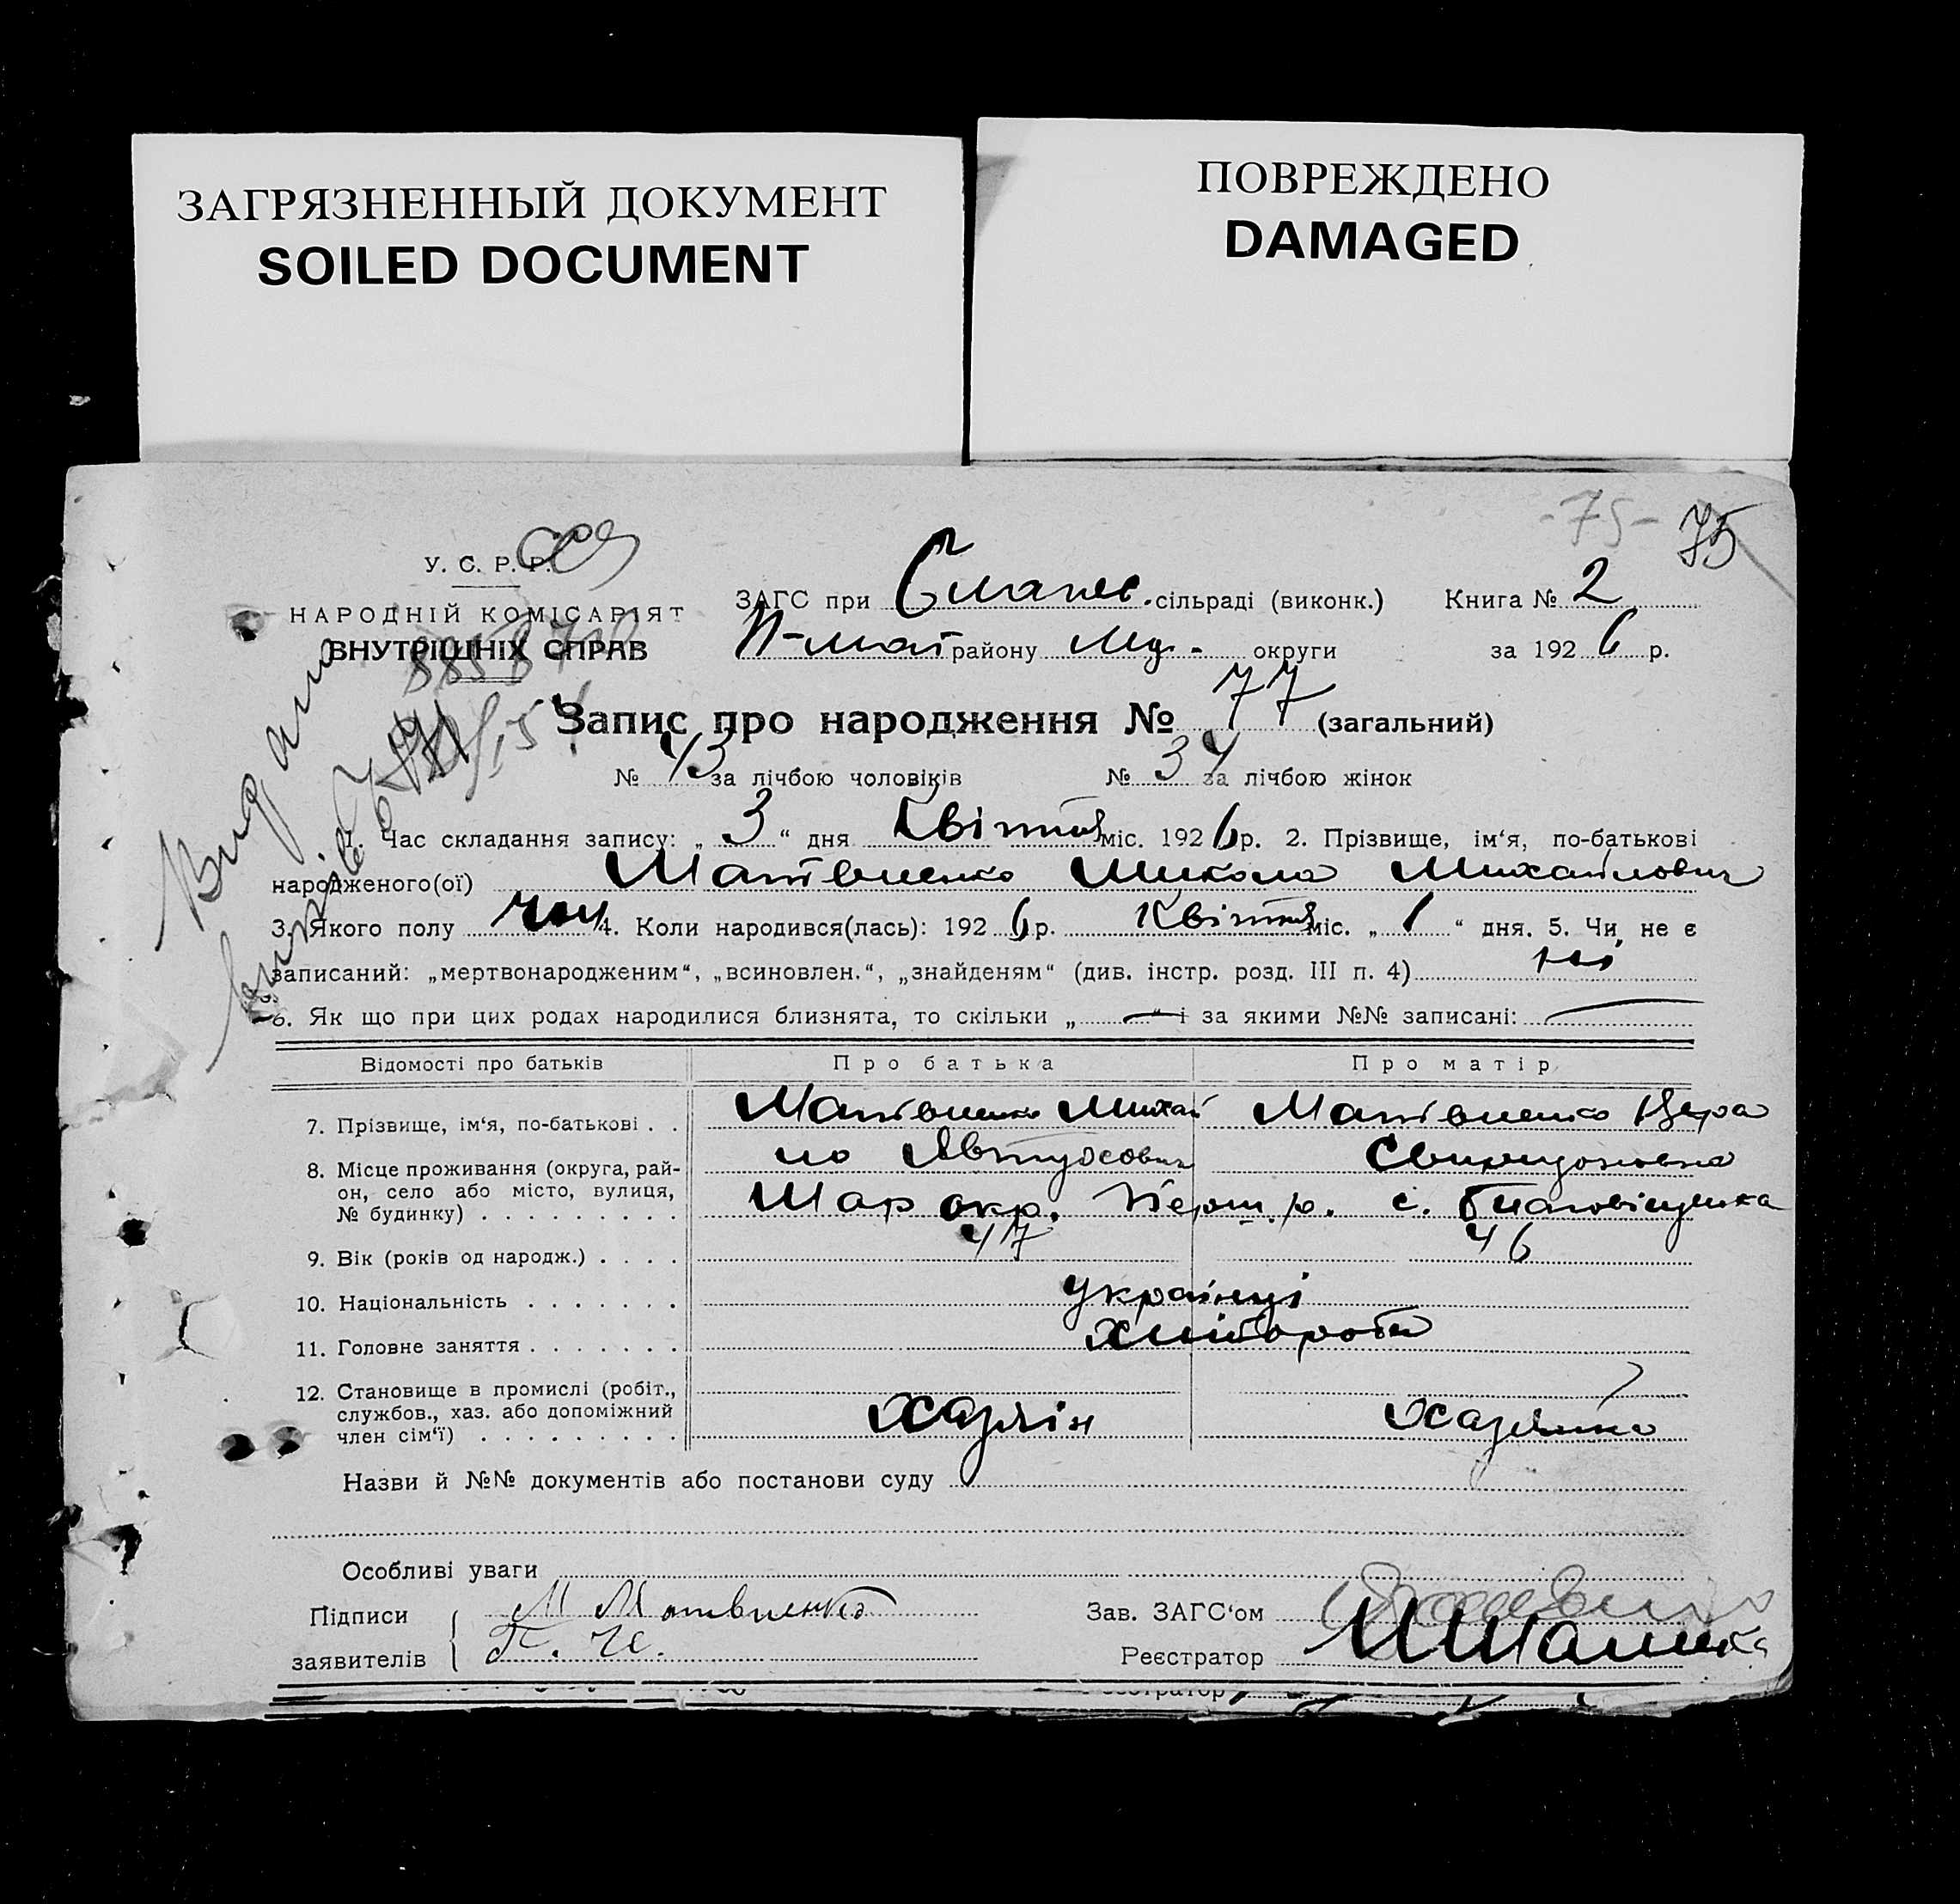 ЗАГРЯЗНЕННЫЙ ДОКУМЕНТ
SOILED DOCUMENT
ПОВРЕЖДЕНО
DAMAGED
-75- 75
У. С. Р. Р.
НАРОДНІЙ КОМІСАРІЯТ
ВНУТРІШНІХ СПРАВ
ЗАГС при сільраді (виконк.) Книга № 2
району округи за 192 6 р.
Запис про народження № 77 (загальний)
№ 43 за лічбою чоловіків № 34 за лічбою жінок
1. Час складання запису: „ 3 “ дня Квітня міс. 192 6 р. 2. Прізвище, ім‘я, по-батькові
народженого(ої) Матвіенко Микола Михайлович
3. Якого полу чол 4. Коли народився(лась): 192 6 р. Квітня міс. „ 1 “ дня. 5. Чи не є
записаний: „мертвонародженим“, „всиновлен.“, „знайденям“ (див. інстр. розд. III п. 4) ні
6. Як що при цих родах народилися близнята, то скільки „ — “ і за якими №№ записані: —
Відомості про батьків Про батька Про матір
7. Прізвище, ім‘я, по-батькові . . Матвіенко Михай Матвіенко
8. Місце проживання (округа, рай- ло Явтухович Свиридоновна
он, село або місто, вулиця,
№ будинку) . . . . . . . . . Мар окр. Перш. р. с. Благовіщенка
9. Вік (років од народж.) . . . . 47 46
10. Національність . . . . . . . українці
11. Головне заняття . . . . . . . хлібороби
12. Становище в промислі (робіт.,
службов., хаз. або допоміжний хазяін хазяйка
член сім‘ї) . . . . . . . . .
Назви й №№ документів або постанови суду
Особливі уваги
Підписи М Матвиенко Зав. ЗАГС‘ом
заявителів Реєстратор